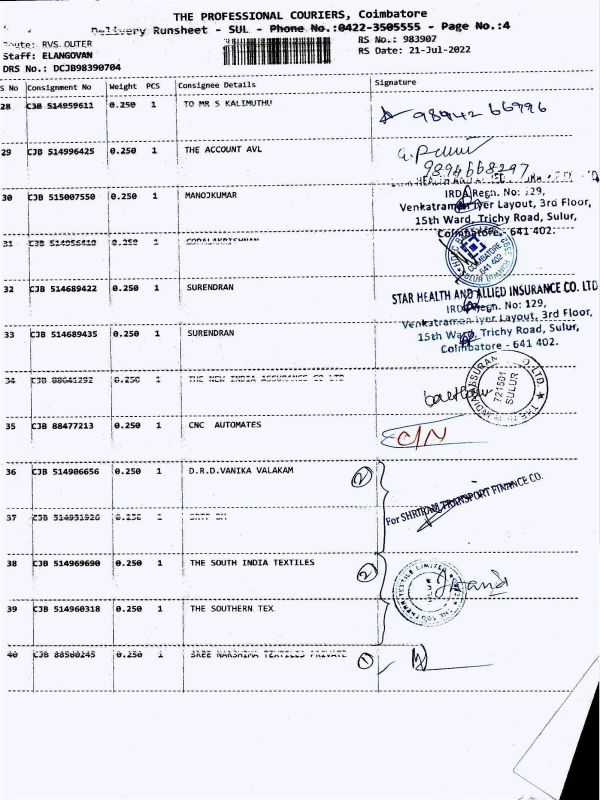 THE PROFESSIONAL COURIERS, Coimbatore
Delivery Runsheet - SUL - Phone No.:0422-3505555 - Page No.:4
Route: RVS OUTER
RS No.: 983907
Staff: ELANGOVAN
RS Date: 21-Jul-2022
DRS No.: DCJB98390704
S No Consignment No Weight PCS Consignee Details Signature
28 CJB 514959611 0.250 1 TO MR S KALIMUTHU 98942 66996
29 CJB 514996425 0.250 1 THE ACCOUNT AVL
9894668297
30 CJB 515007550 0.250 1 MANOJKUMAR
IRDA Regn. No: 129,
Venkatraman Iyer Layout, 3rd Floor,
15th Ward, Trichy Road, Sulur,
Coimbatore - 641 402.
31 CJB 0.250 1 GOPALAKRISHNAN
COIMBATORE
641 402
32 CJB 514689422 0.250 1 SURENDRAN
STAR HEALTH AND ALLIED INSURANCE CO. LTD
IRDA Regn. No: 129,
Venkatraman Iyer Layout, 3rd Floor,
33 CJB 514689435 0.250 1 SURENDRAN
15th Ward, Trichy Road, Sulur,
Coimbatore - 641 402.
34 CJB 88641292 0.250 1 THE NEW INDIA ASSURANCE CO LTD
721501
SULUR
35 CJB 88477213 0.250 1 CNC AUTOMATES
36 CJB 514906656 0.250 1 D.R.D.VANIKA VALAKAM 2
For SHRIRAM TRANSPORT FINANCE CO.
37 CJB 514931926 0.250 1
38 CJB 514969690 0.250 1 THE SOUTH INDIA TEXTILES 2
39 CJB 514960318 0.250 1 THE SOUTHERN TEX
40 CJB 88580245 0.250 1 SREE NARSHIMA TEXTILES PRIVATE 1